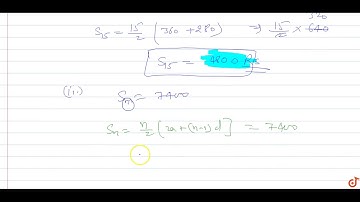 S₁₅ = 15/2 (360 + 280) ⇒ 15/2 × 640 320
S₁₅ = 4800 Rs
(ii) Sₙ = 7400
Sₙ = n/2 [2a + (n-1) d] = 7400